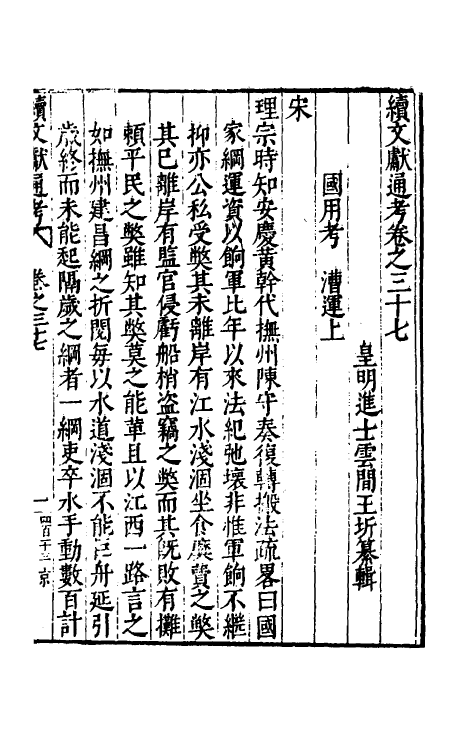 續文獻通考卷之三十七
皇明進士雲間王圻纂輯
國用考 漕運上
宋
理宗時知安慶黃幹代撫州陳守奏復轉搬法疏畧曰國
家綱運資以餉軍比年以來法紀弛壞非惟軍餉不繼
抑亦公私受弊其未離岸有江水淺涸坐食糜費之弊
其已離岸有監官侵虧船梢盜竊之弊而其既敗有攤
賴平民之弊雖知其弊莫之能革且以江西一路言之
如撫州建昌綱之折閱每以水道淺涸不能巨舟延引
歲終而未能起隔歲之綱者一綱吏卒水手動數百計
續文獻通考 卷之三七 一